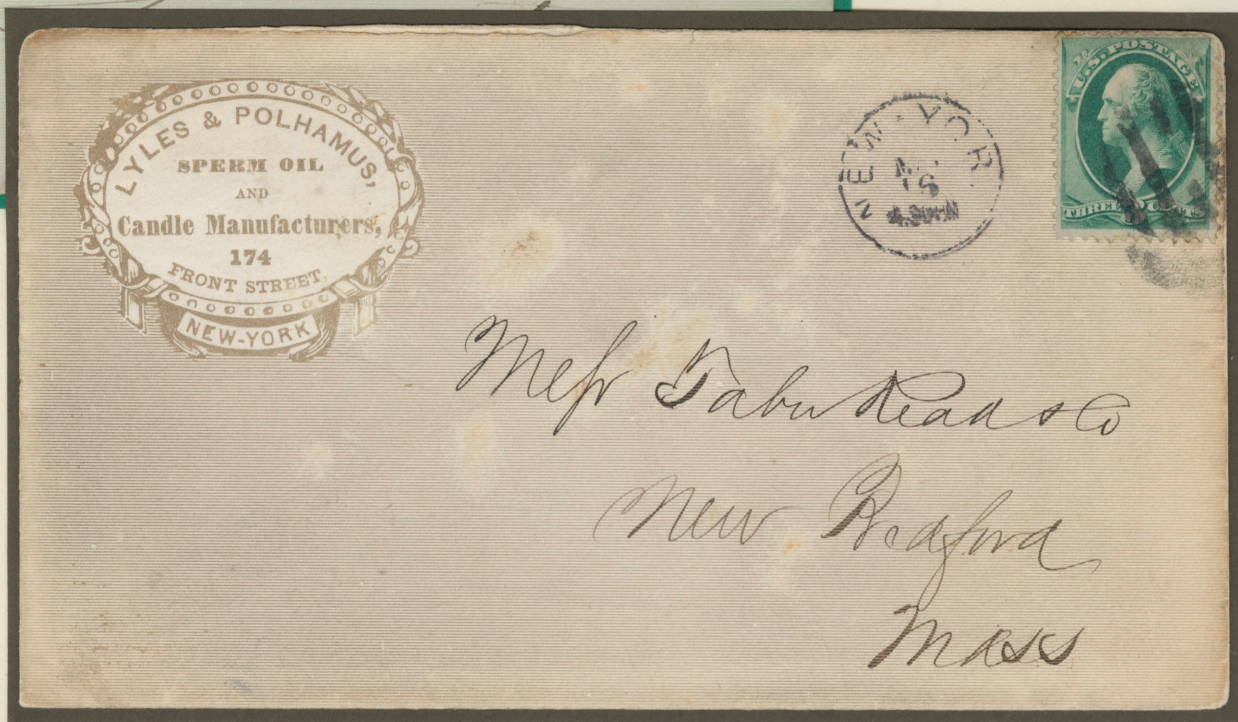 LYLES & POLHAMUS,
SPERM OIL
AND
Candle Manufacturers,
174
FRONT STREET,
NEW-YORK
NEW-YOR
16
U.S. POSTAGE
THREE CENTS
Messr Taber Read & Co
New Bedford
Mass